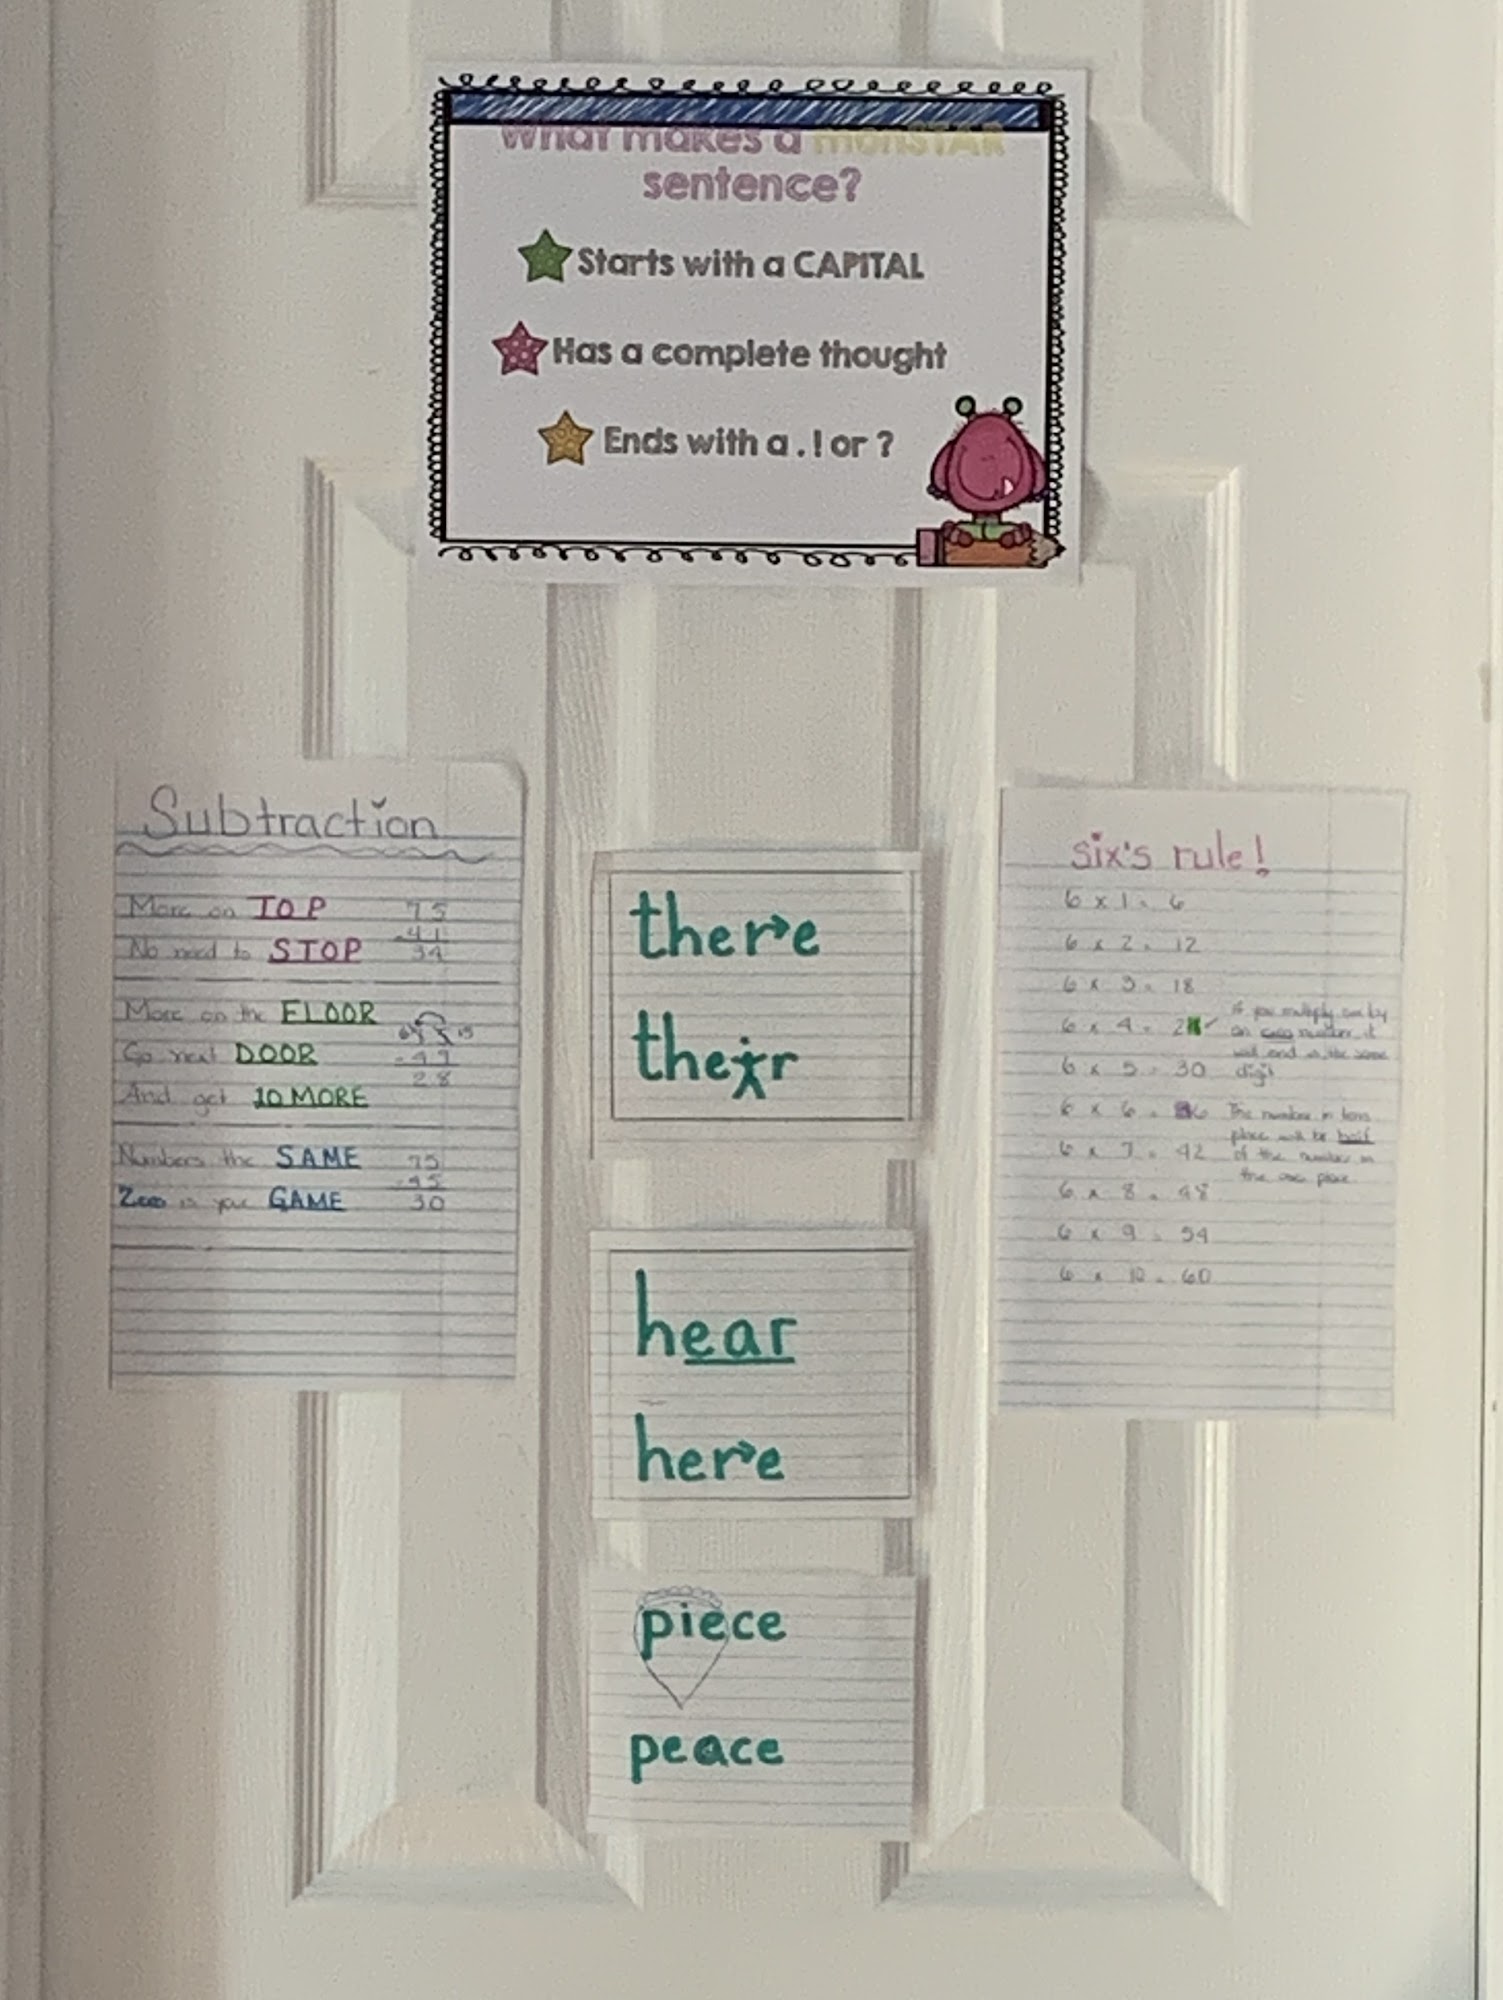 What makes a monSTAR
sentence?
Starts with a CAPITAL
Has a complete thought
Ends with a . ! or ?
Subtraction
More on TOP 75
No need to STOP -41
34
More on the FLOOR
Go next DOOR -47
And get 10 MORE 28
Numbers the SAME 75
Zero is your GAME -45
30
there
their
hear
here
piece
peace
six's rule!
6 x 1 = 6
6 x 2 = 12
6 x 3 = 18
6 x 4 = 24
6 x 5 = 30
6 x 6 = 36
6 x 7 = 42
6 x 8 = 48
6 x 9 = 54
6 x 10 = 60
If you multiply six by
an even number, it
will end in the same
digit
The number in tens
place will be half
of the number in
the ones place